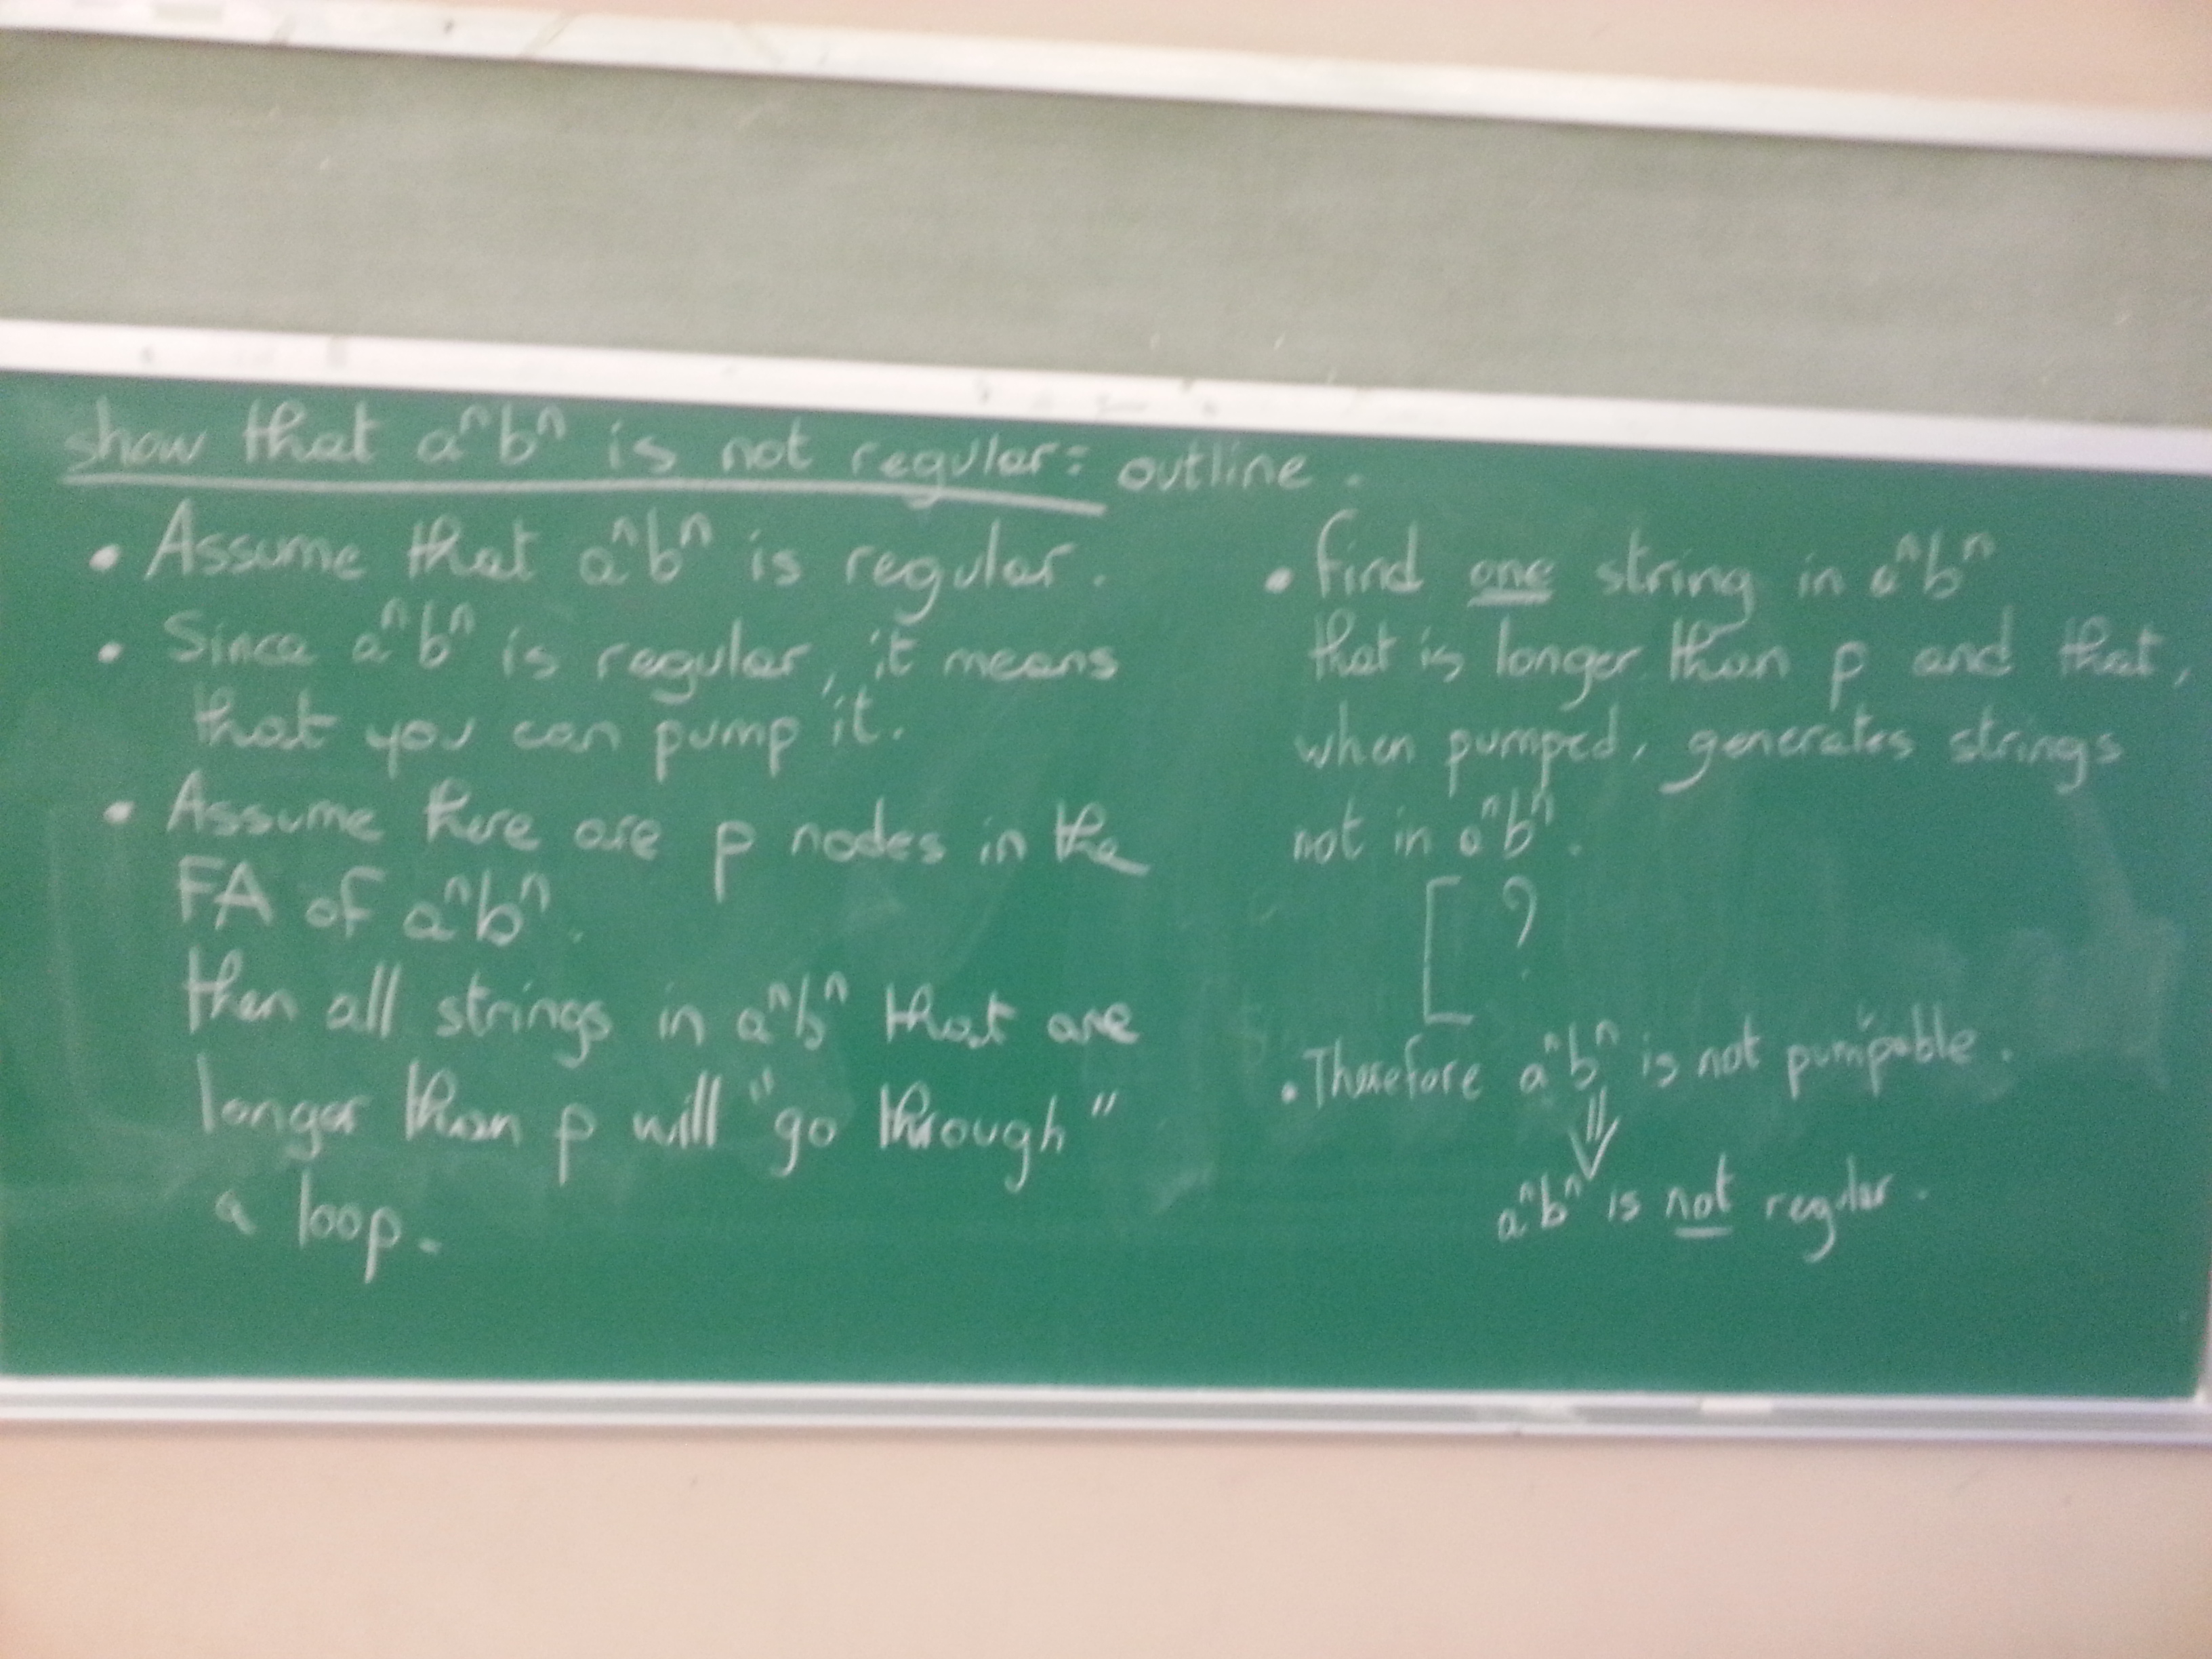 show that aⁿbⁿ is not regular: outline.
• Assume that aⁿbⁿ is regular.
• Since aⁿbⁿ is regular, it means
that you can pump it.
• Assume there are p nodes in the
FA of aⁿbⁿ.
then all strings in aⁿbⁿ that are
longer than p will "go through"
a loop.
• find one string in aⁿbⁿ
that is longer than p and that,
when pumped, generates strings
not in aⁿbⁿ.
[ ?
• Therefore aⁿbⁿ is not pumpable.
⇓
aⁿbⁿ is not regular.